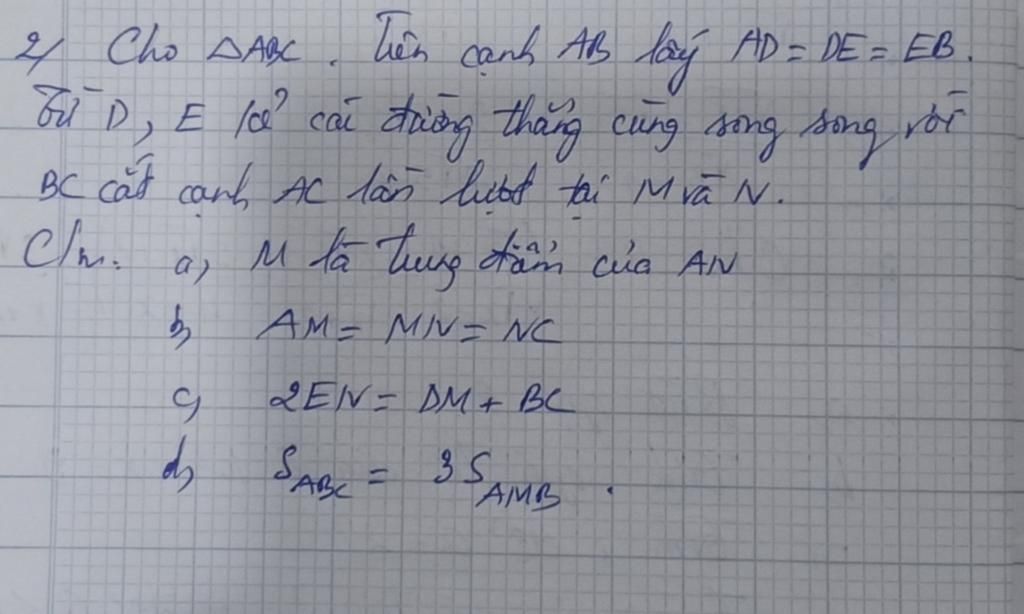 2/ Cho △ABC. Trên cạnh AB lấy AD = DE = EB.
Từ D, E kẻ các đường thẳng cùng song song với
BC cắt cạnh AC lần lượt tại M và N.
C/m. a, M là trung điểm của AN
b, AM = MN = NC
c, 2EN = DM + BC
d, S_ABC = 3 S_AMB.